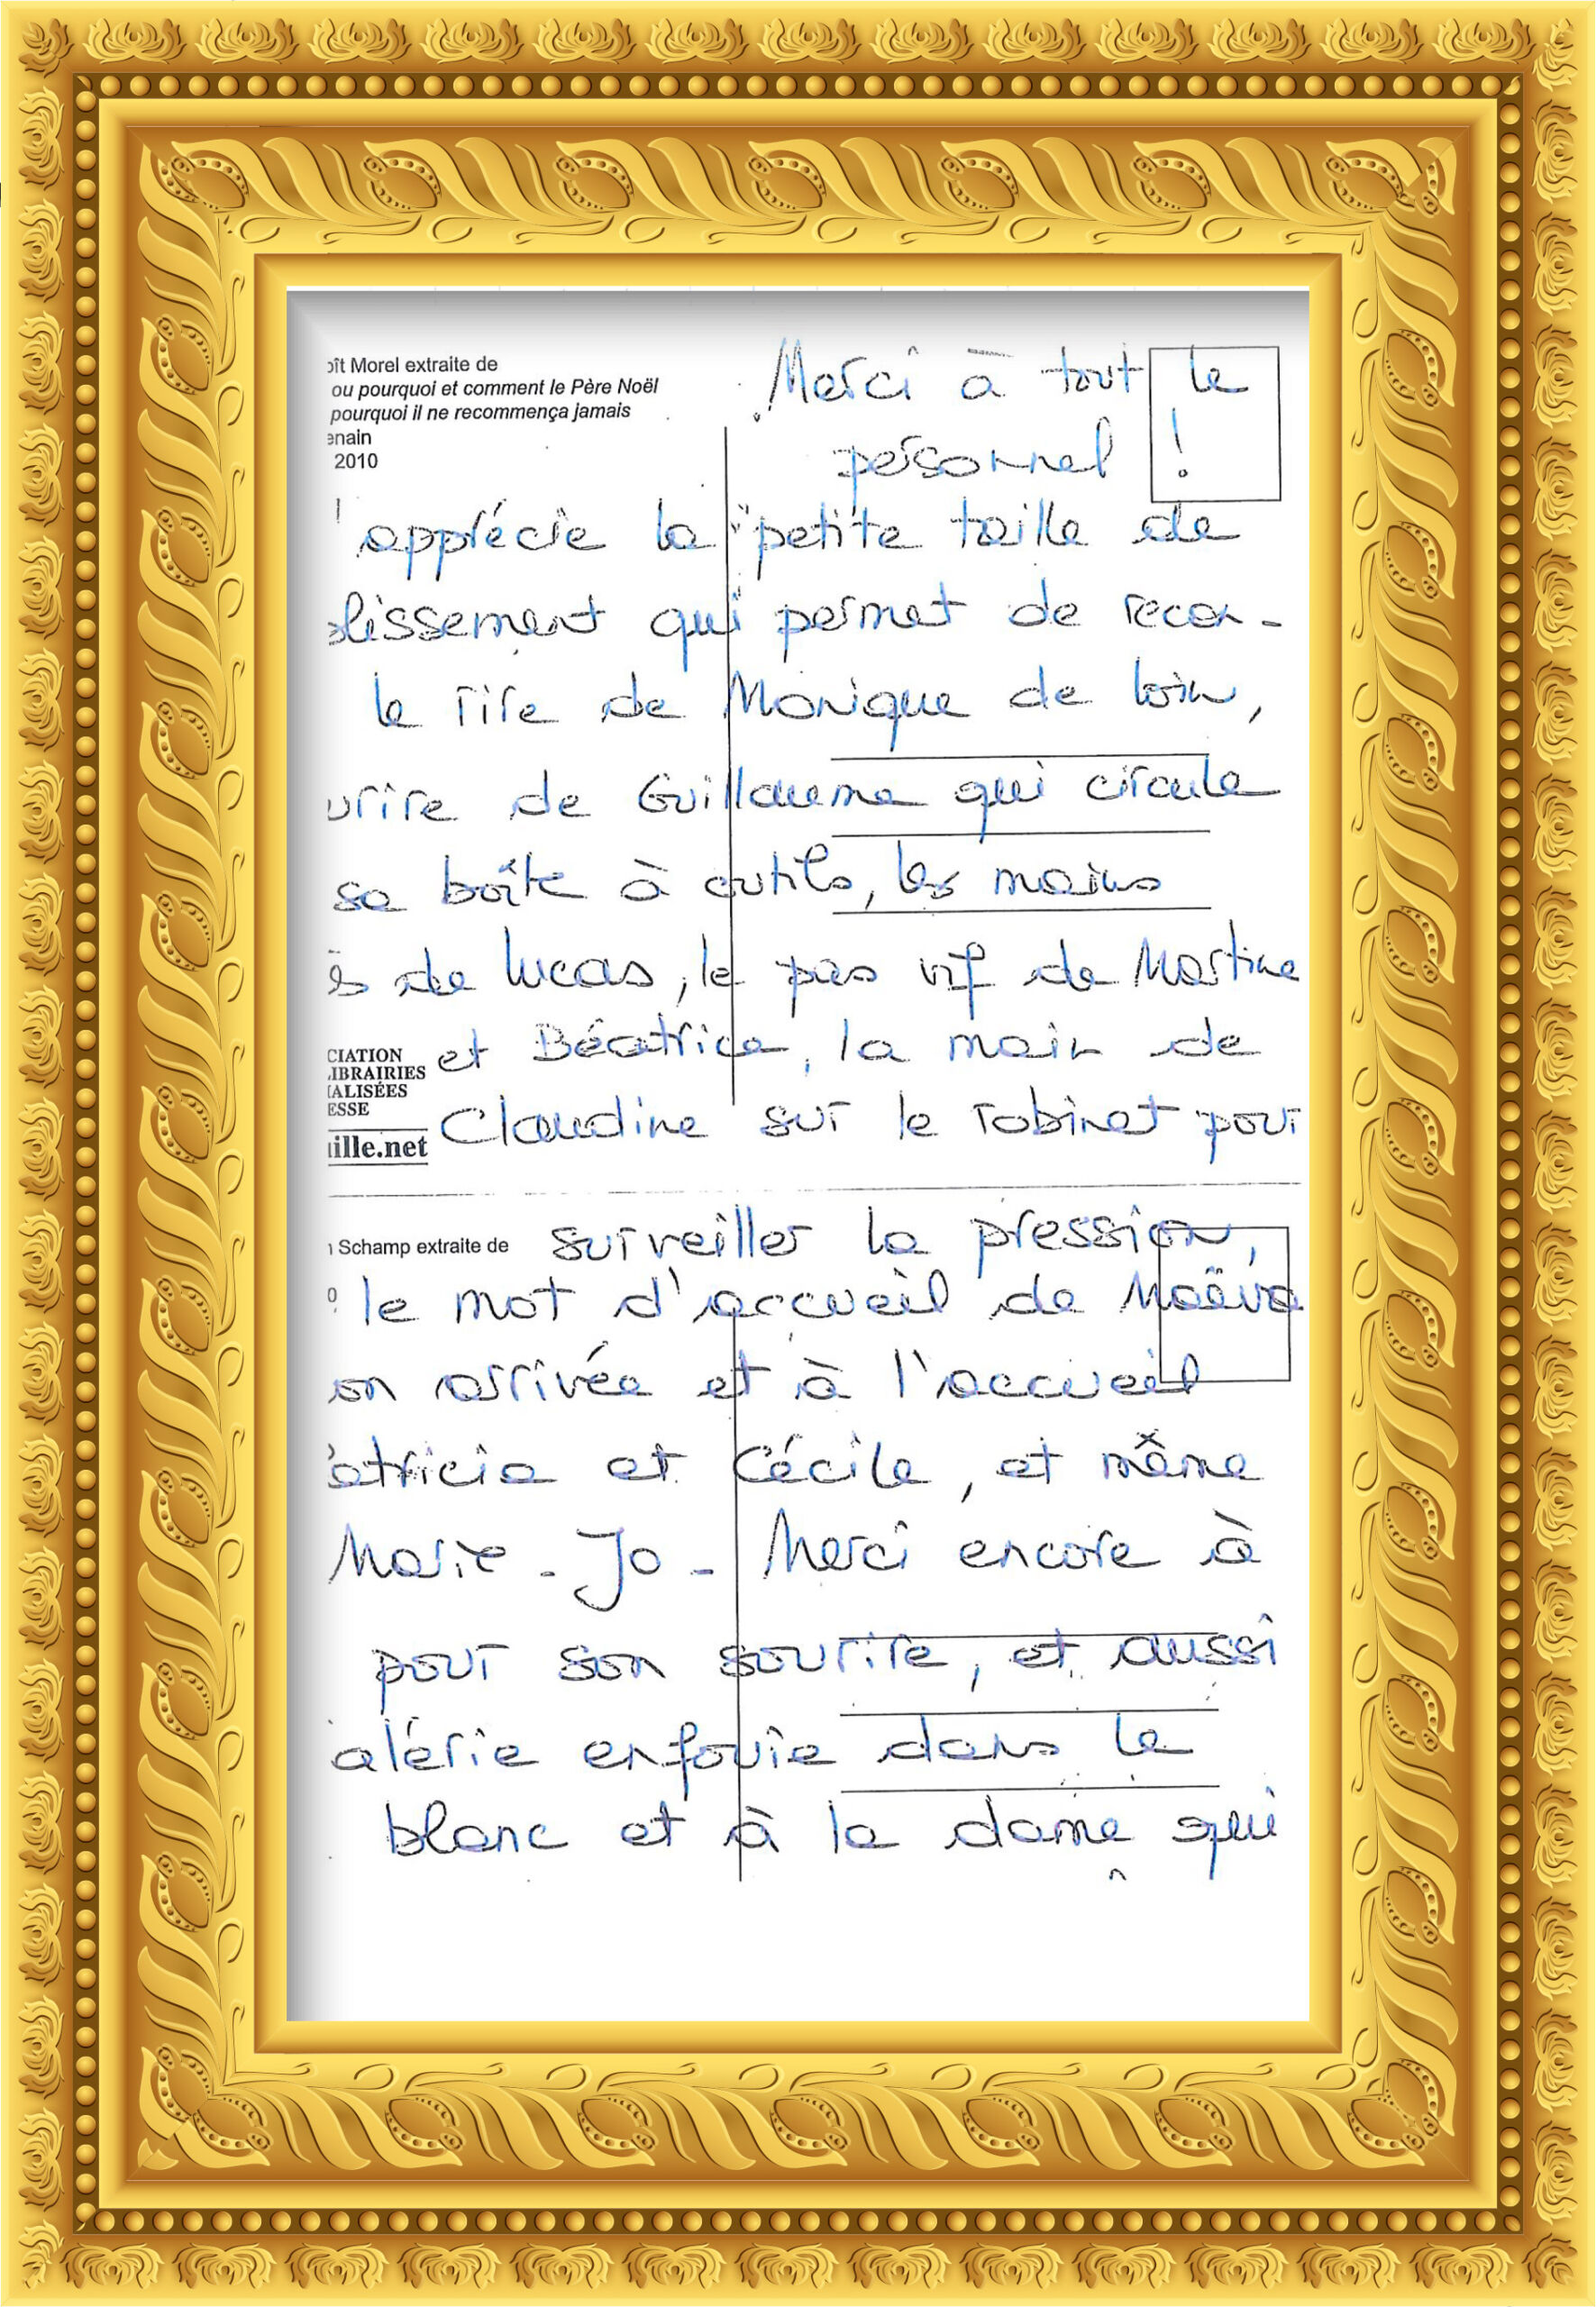 oît Morel extraite de
ou pourquoi et comment le Père Noël
pourquoi il ne recommença jamais
enain
2010
Merci à tout le
personnel !
apprécie la petite taille de
lissement qui permet de recon-
le rire de Monique de loin,
urire de Guillaume qui circule
sa boîte à outils, les mains
de Lucas, le pas vif de Martine
et Béatrice, la main de
Claudine sur le robinet pour
CIATION
LIBRAIRIES
IALISÉES
ESSE
ille.net
Schamp extraite de
surveiller la pression,
le mot d'accueil de Maëva
on arrivée et à l'accueil
atricia et Cécile, et même
Marie-Jo - Merci encore à
pour son sourire, et aussi
alérie enfouie dans le
blanc et à la dame qui